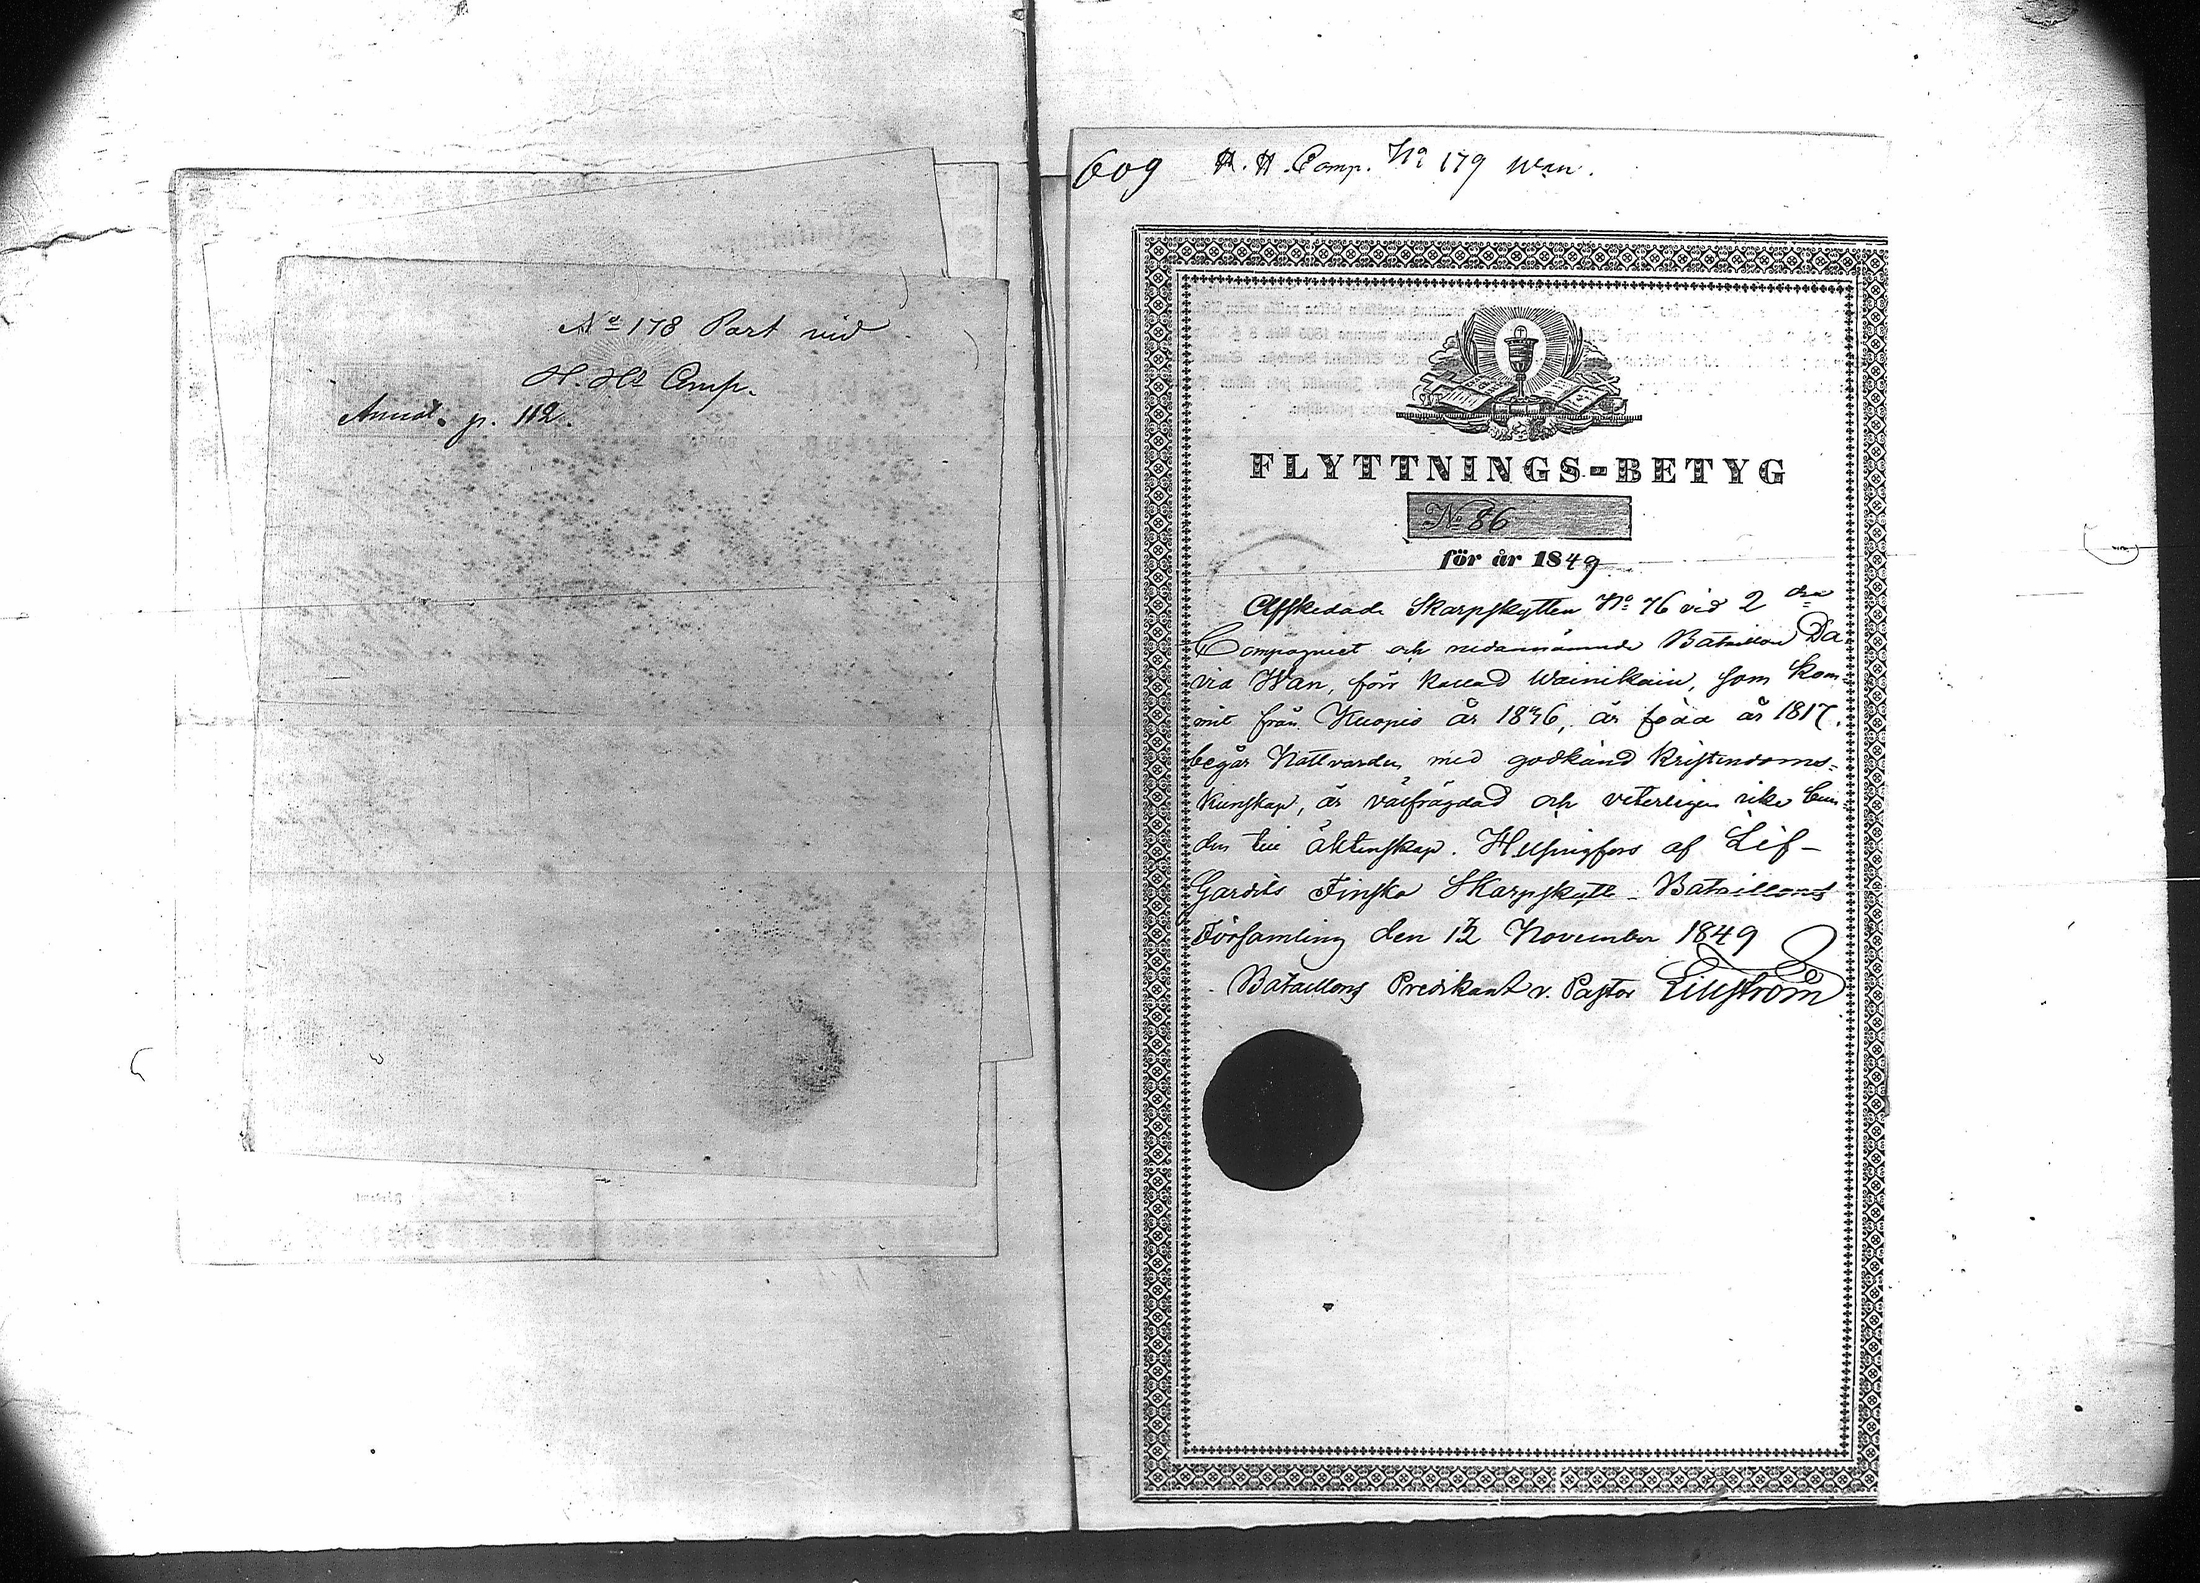 No 178 Part vid
H. Hs Comp.
Anmäl. p. 112.
609 H. H. Comp. No 179 Wän.
FLYTTNINGS-BETYG
No 86
för år 1849
Afskedade Skarpskytten No 76 vid 2 dra
Compagniet och nedannämnde Bataillon Da
vid Wän, förr kallad Wainikain, som kom-
mit från Kuopio år 1846, är född år 1817,
begår Nattvarden med godkänd Kristendoms-
kunskap, är välfrägdad och veterligen icke bun-
den till äktenskap. Helsingfors af Lif-
Gardets Finska Skarpskytte-Bataillons
Församling den 12 November 1849
Bataillons Predikant v. Pastor Lillström